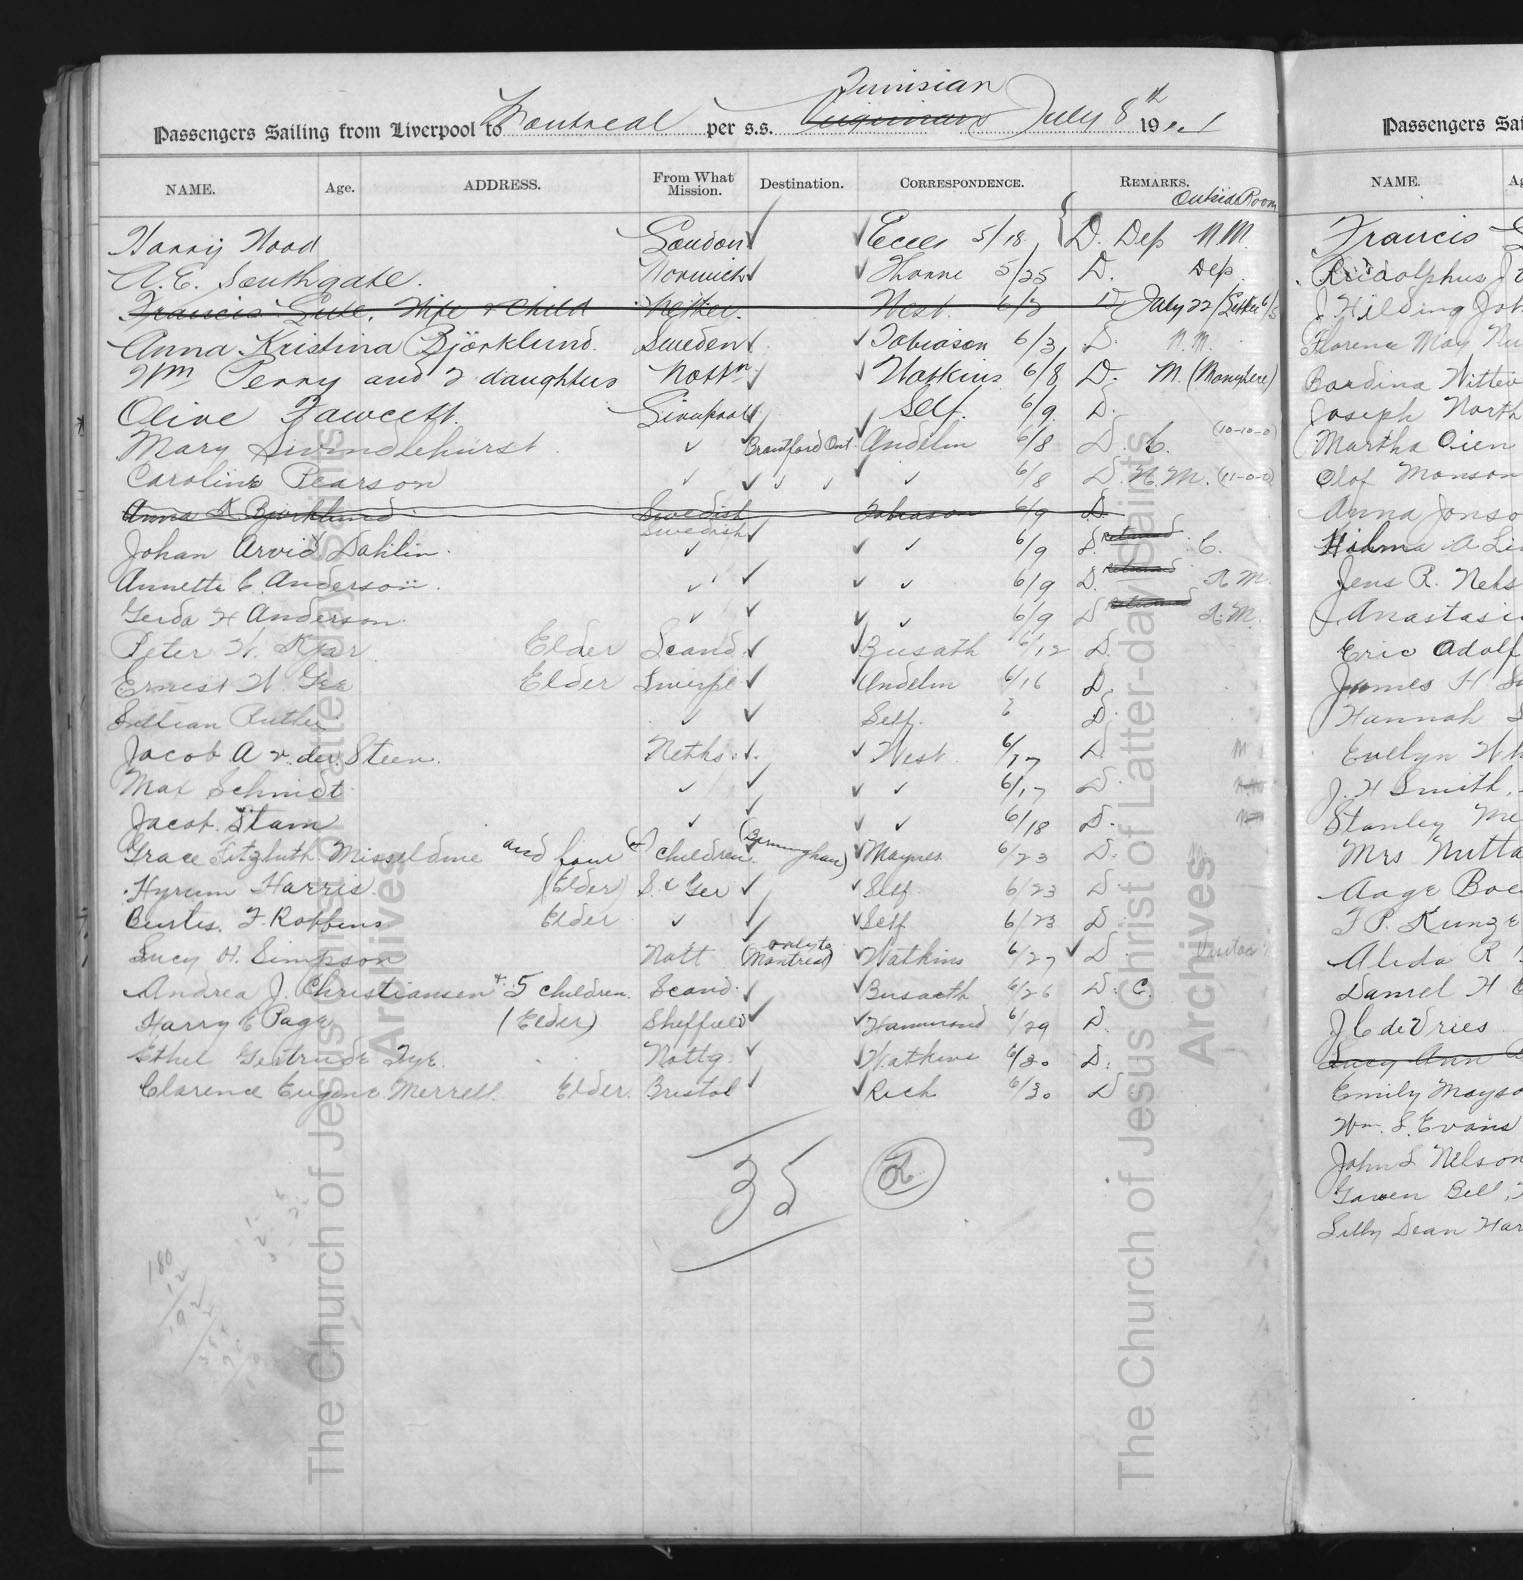 Tunisian
Passengers Sailing from Liverpool to Montreal per s.s. July 8th 19
NAME. Age. ADDRESS. From What Mission. Destination. CORRESPONDENCE. REMARKS.
Outside Room
Harry Wood London ✓ ✓ Eccles 5/18 D. Dep N.M.
A. E. Southgate. Norwich ✓ ✓ Thorne 5/25 D. Dep.
Francis Gute, Wife & Child Nether. West 6/3 D July 22 (Letter 6/5
Anna Kristina Björklund. Sweden ✓ ✓ Tobiason 6/3 D. N.M.
Wm Perry and 2 daughters Nottm ✓ ✓ Watkins 6/8 D. M. (Money here)
Olive Fawcett. Liverpool ✓ ✓ Self. 6/9 D.
Mary Swindlehurst ✓ ✓ Brantford Ont. Andelin 6/8 D. C. (10-10-0)
Caroline Pearson ✓ ✓ ✓ ✓ ✓ ✓ 6/8 D. N.M. (11-0-0)
Anna K Bjorklund Swedish Tobiason 6/9 D.
Swedish ✓
Johan Arvid Dahlin. ✓ ✓ ✓ 6/9 D. Returned C.
Annette C. Anderson. ✓ ✓ ✓ ✓ 6/9 D. Returned N.M.
Gerda H Anderson. ✓ ✓ ✓ ✓ 6/9 D Returned N.M.
Peter W. Kjar Elder Scand. ✓ ✓ Busath 6/12 D.
Ernest W. Gee Elder Liverpl ✓ ✓ Andelin 6/16 D.
Lillian ✓ ✓ Self. D.
Jacob A v. der Steen. Neths. ✓ ✓ West 6/17 D M
Max Schmidt ✓ ✓ ✓ ✓ 6/17 D.
Jacob Stam ✓ ✓ ✓ ✓ 6/18 D.
Grace Fitzhuth Misseldine and four (4) children (Birmingham) ✓ Maynes 6/23 D.
Hyrum Harris (Elder) S. & Ger ✓ ✓ Self 6/23 D.
F. Robbins Elder ✓ ✓ ✓ Self 6/23 D.
Lucy H. Simpson Nott (only to Montreal) ✓ Watkins 6/27 ✓ D. Visitor
Andrea J. Christiansen & 5 children. Scand. ✓ ✓ Busath 6/26 D. C.
Harry E Page (Elder) Sheffield ✓ ✓ Hammond 6/29 D.
Ethel Gertrude Tye. Nottg. ✓ ✓ Watkins 6/30 D.
Clarence Eugene Merrell. Elder. Bristol ✓ ✓ Rich 6/30 D
35
180
12
192
The Church of Jesus Christ of Latter-day Saints
Archives
The Church of Jesus Christ of Latter-day Saints
Archives
Passengers Sai
NAME. Ag
Francis
Rudolphus
J. Hilding Joh
Florence May Nu
Bardina Wittev
Joseph North
Martha Oien
Olof Monson
Anna Jonso
Hilma A Lin
Jens R. Nels
Anastasi
Eric Adolf
James H
Hannah
Evelyn Wh
J. H Smith,
Stanley Me
Mrs Nutta
Aage Boe
F P. Kunze
Alida R
Daniel H
J C de Vries
Lucy Ann
Emily Mayso
Wm. S. Evans
John S Nelson
Gawen Bell,
Lilly Dean Har